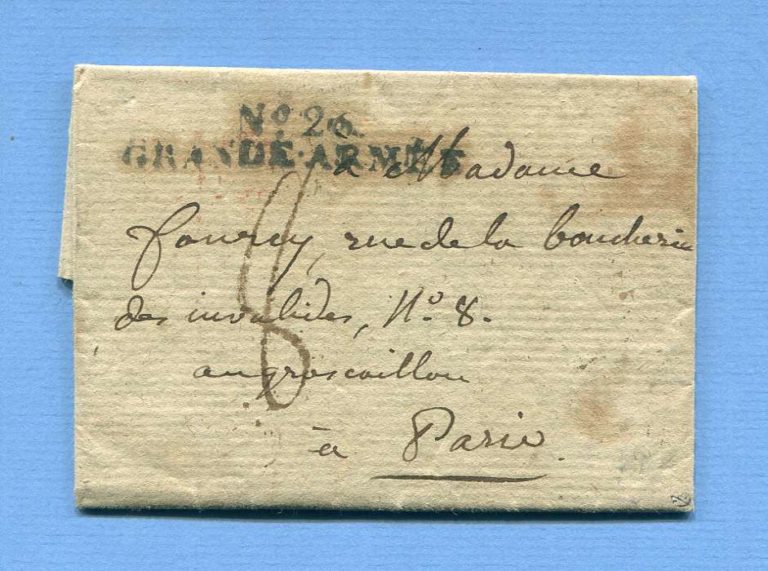 No. 26.
GRANDE-ARMÉE
à Madame
fourcy, rue de la boucherie
des invalides, No. 8.
au gros caillou
à Paris.